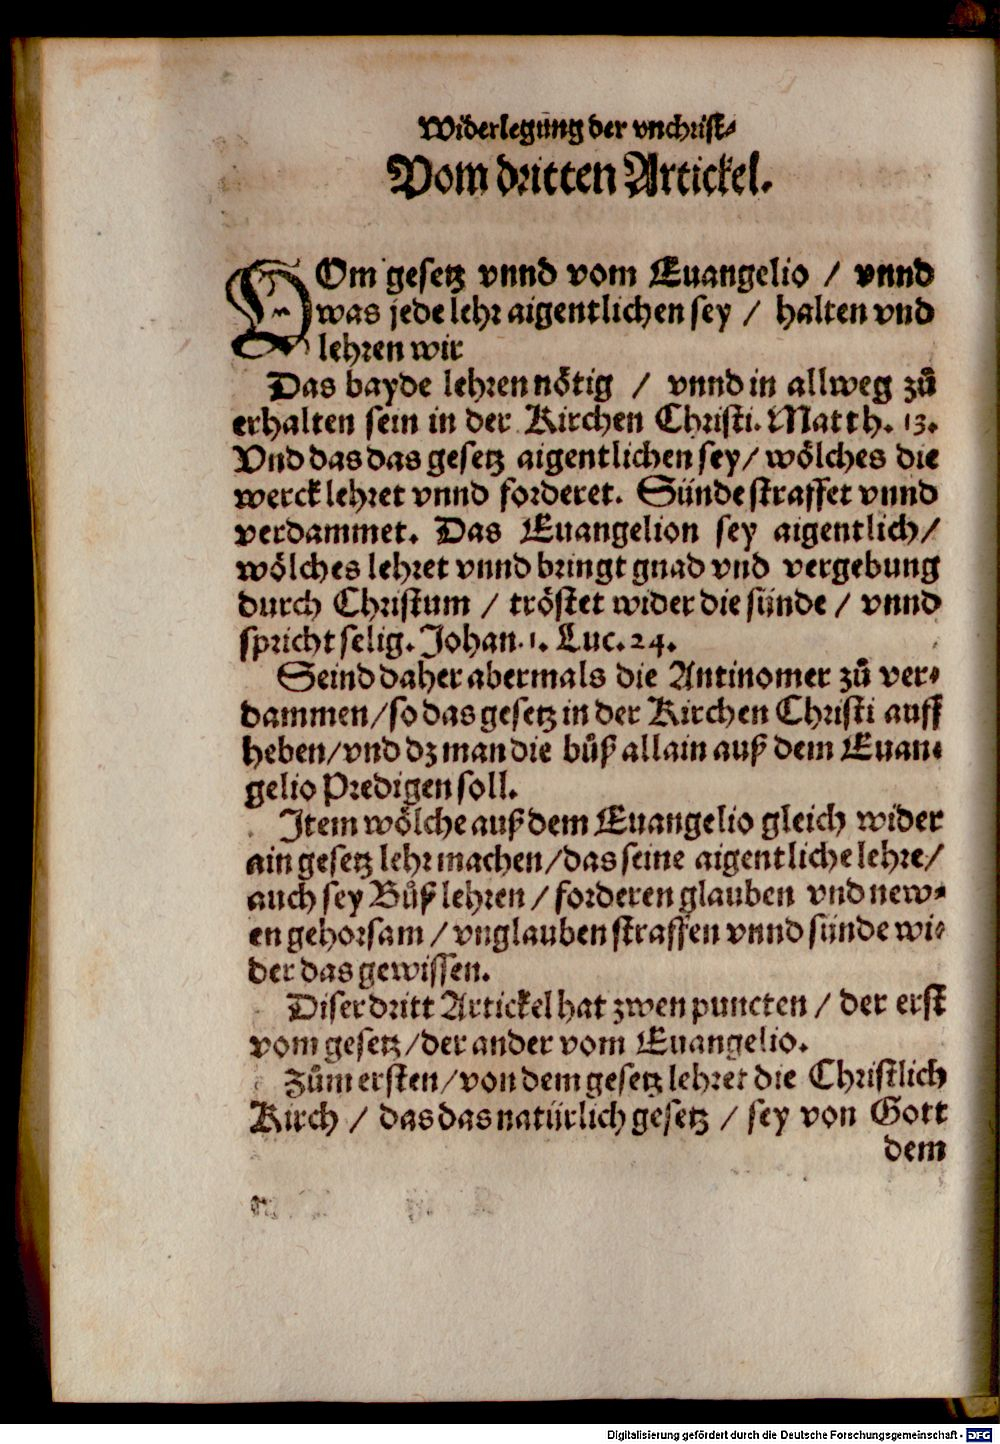 Widerlegung der vnchrist⸗
Vom dritten Artickel.
VOm gesetz vnnd vom Euangelio / vnnd
was jede lehr aigentlichen sey / halten vnd
lehren wir
Das bayde lehren nötig / vnnd in allweg zů
erhalten sein in der Kirchen Christi. Matth. 13.
Vnd das das gesetz aigentlichen sey/ wölches die
werck lehret vnnd forderet. Sünde straffet vnnd
verdammet. Das Euangelion sey aigentlich/
wölches lehret vnnd bringt gnad vnd vergebung
durch Christum / tröstet wider die sünde / vnnd
spricht selig. Johan. 1. Luc. 24.
Seind daher abermals die Antinomer zů ver⸗
dammen/so das gesetz in der Kirchen Christi auff
heben/vnd dz man die bůß allain auß dem Euan⸗
gelio Predigen soll.
Item wölche auß dem Euangelio gleich wider
ain gesetz lehr machen/das seine aigentliche lehre/
auch sey Bůß lehren / forderen glauben vnd new⸗
en gehorsam / vnglauben straffen vnnd sünde wi⸗
der das gewissen.
Diser dritt Artickel hat zwen puncten / der erst
vom gesetz/der ander vom Euangelio.
Zům ersten/von dem gesetz lehret die Christlich
Kirch / das das natürlich gesetz / sey von Gott
dem
Digitalisierung gefördert durch die Deutsche Forschungsgemeinschaft - DFG